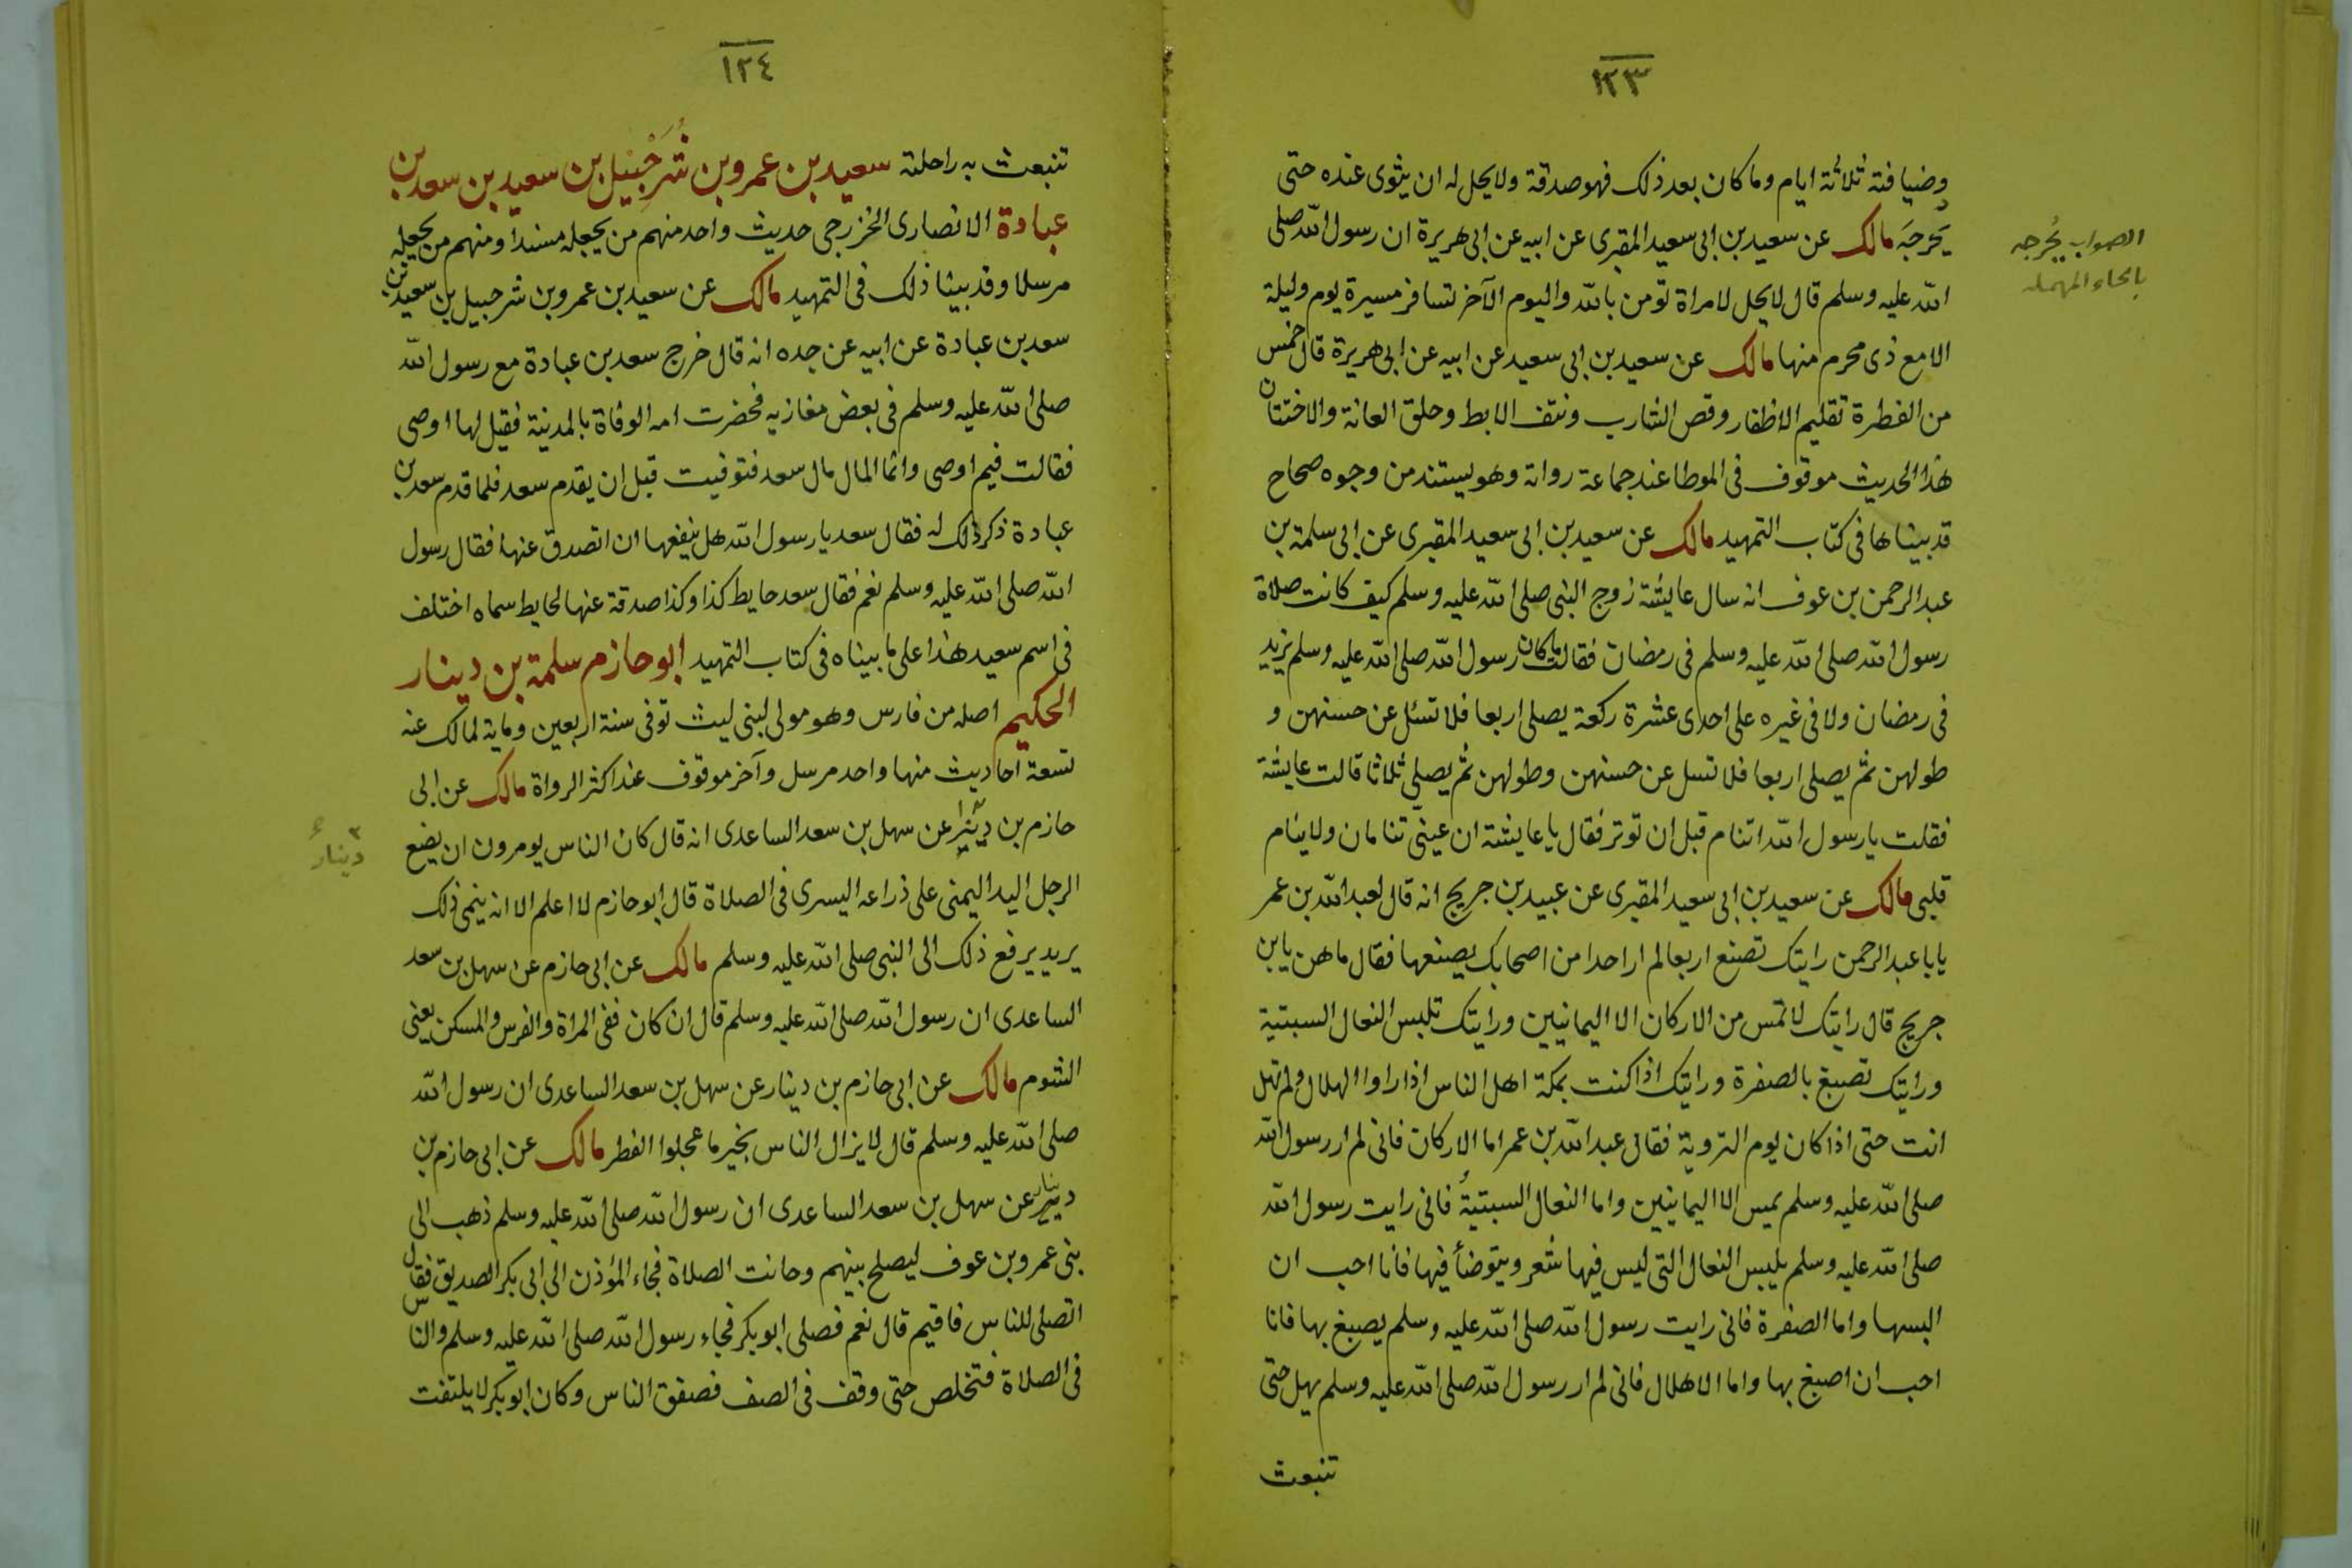 ١٢٣
وضيافته ثلاثة ايام وما كان بعد ذلك فهو صدقة ولا يحل له ان يثوى عنده حتى
يخرجَه مالك عن سعيد بن ابى سعيد المقبرى عن ابيه عن ابى هريرة ان رسول الله صلى
الصواب يُحرجه
بالحاء المهملة
الله عليه وسلم قال لا يحل لامراة تومن بالله واليوم الآخر تسافر مسيرة يوم وليلة
الا مع ذى محرم منها مالك عن سعيد بن ابى سعيد عن ابيه عن ابى هريرة قال خمس
من الفطرة تقليم الاظفار وقص الشارب ونتف الابط وحلق العانة والاختتان
هذا الحديث موقوف فى الموطا عند جماعة رواته وهو يستند من وجوه صحاح
قد بيناها فى كتاب التمهيد مالك عن سعيد بن ابى سعيد المقبرى عن ابى سلمة بن
عبد الرحمن بن عوف انه سال عايشة زوج النبى صلى الله عليه وسلم كيف كانت صلاة
رسول الله صلى الله عليه وسلم فى رمضان فقالت ما كان رسول الله صلى الله عليه وسلم يزيد
فى رمضان ولا فى غيره على احدى عشرة ركعة يصلى اربعا فلا تسئل عن حسنهن و
طولهن ثم يصلى اربعا فلا تسل عن حسنهن وطولهن ثم يصلى ثلاثا قالت عايشة
فقلت يا رسول الله اتنام قبل ان توتر فقال يا عايشة ان عينىّ تنامان ولا ينام
قلبى مالك عن سعيد بن ابى سعيد المقبرى عن عبيد بن جريج انه قال لعبد الله بن عمر
يابا عبد الرحمن رايتك تصنع اربعا لم ار احدا من اصحابك يصنعها فقال ما هن يا بن
جريج قال رايتك لا تمس من الاركان الا اليمانيين ورايتك تلبس النعال السبتية
ورايتك تصبغ بالصفرة ورايتك اذا كنت بمكة اهل الناس اذا راوا الهلال ولم تهل
انت حتى اذا كان يوم التروية فقال عبد الله بن عمر اما الاركان فانى لم ار رسول الله
صلى الله عليه وسلم يمس الا اليمانيين واما النعال السبتيةُ فانى رايت رسول الله
صلى الله عليه وسلم يلبس النعال التى ليس فيها شعر ويتوضأ فيها فانا احب ان
البسها واما الصفرة فانى رايت رسول الله صلى الله عليه وسلم يصبغ بها فانا
احب ان اصبغ بها واما الاهلال فانى لم ار رسول الله صلى الله عليه وسلم يهل حتى
تنبعث
١٢٤
تنبعث به راحلته سعيد بن عمرو بن شُرَحْبِيْل بن سعيد بن سعد بن
عبادة الانصارى الخزرجى حديث واحد منهم من يجعله مسندا ومنهم من يجعله
مرسلا وقد بينا ذلك فى التمهيد مالك عن سعيد بن عمرو بن شرحبيل بن سعيد بن
سعد بن عبادة عن ابيه عن جده انه قال خرج سعد بن عبادة مع رسول الله
صلى الله عليه وسلم فى بعض مغازيه فحضرت امه الوفاة بالمدينة فقيل لها اوصى
فقالت فيم اوصى وانما المال مال سعد فتوفيت قبل ان يقدم سعد فلما قدم سعد بن
عبادة ذكر ذلك له فقال سعد يا رسول الله هل ينفعها ان اتصدق عنها فقال رسول
الله صلى الله عليه وسلم نعم فقال سعد حايط كذا وكذا صدقة عنها لحايط سماه اختلف
فى اسم سعيد هذا على ما بيناه فى كتاب التمهيد ابو حازم سلمة بن دينار
الحكيم اصله من فارس وهو مولى لبنى ليث توفى سنة اربعين وماية لمالك عنه
تسعة احاديث منها واحد مرسل وآخر موقوف عند اكثر الرواة مالك عن ابى
حازم بن عن سهل بن سعد الساعدى انه قال كان الناس يومرون ان يضع
دينار
الرجل اليد اليمنى على ذراعه اليسرى فى الصلاة قال ابو حازم لا اعلم الا انه ينمى ذلك
يريد يرفع ذلك الى النبى صلى الله عليه وسلم مالك عن ابى حازم عن سهل بن سعد
الساعدى ان رسول الله صلى الله عليه وسلم قال ان كان ففى المراة والفرس والمسكن يعنى
الشوم مالك عن ابى حازم بن دينار عن سهل بن سعد الساعدى ان رسول الله
صلى الله عليه وسلم قال لا يزال الناس بخير ما عجلوا الفطر مالك عن ابى حازم بن
دينار عن سهل بن سعد الساعدى ان رسول الله صلى الله عليه وسلم ذهب الى
بنى عمرو بن عوف ليصلح بينهم وحانت الصلاة فجاء المؤذن الى ابى بكر الصديق فقال
اتصلى للناس فاقيم قال نعم فصلى ابو بكر فجاء رسول الله صلى الله عليه وسلم والناس
فى الصلاة فتخلص حتى وقف فى الصف فصفق الناس وكان ابو بكر لا يلتفت